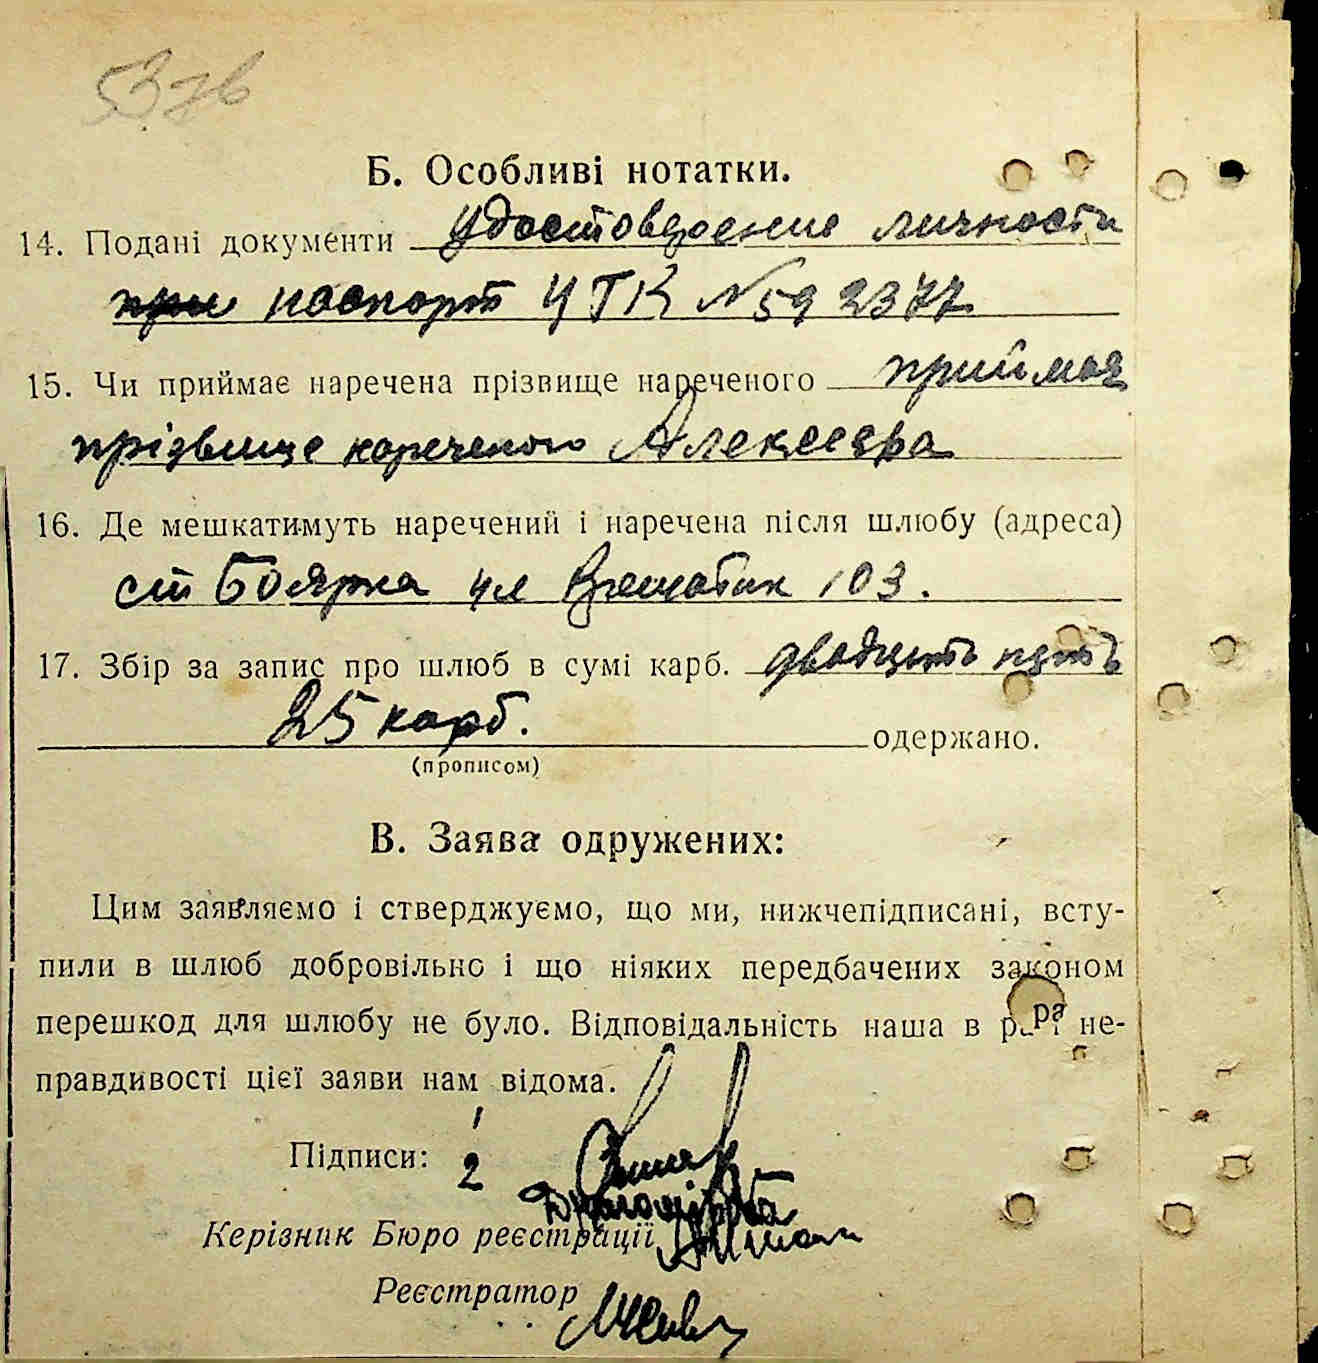 537в
Б. Особливі нотатки.
14. Подані документи удостоверение личности
паспорт УТК № 592377
15. Чи приймає наречена прізвище нареченого приймая
прізвище нареченого Алексеева
16. Де мешкатимуть наречений і наречена після шлюбу (адреса)
ст Боярка ул 103.
17. Збір за запис про шлюб в сумі карб. двадцать пять
25 карб. одержано.
(прописом)
В. Заява одружених:
Цим заявляємо і стверджуємо, що ми, нижчепідписані, всту-
пили в шлюб добровільно і що ніяких передбачених законом
перешкод для шлюбу не було. Відповідальність наша в разі не-
правдивості цієї заяви нам відома.
Підписи: 1
2
Керізник Бюро реєстрації
Реєстратор